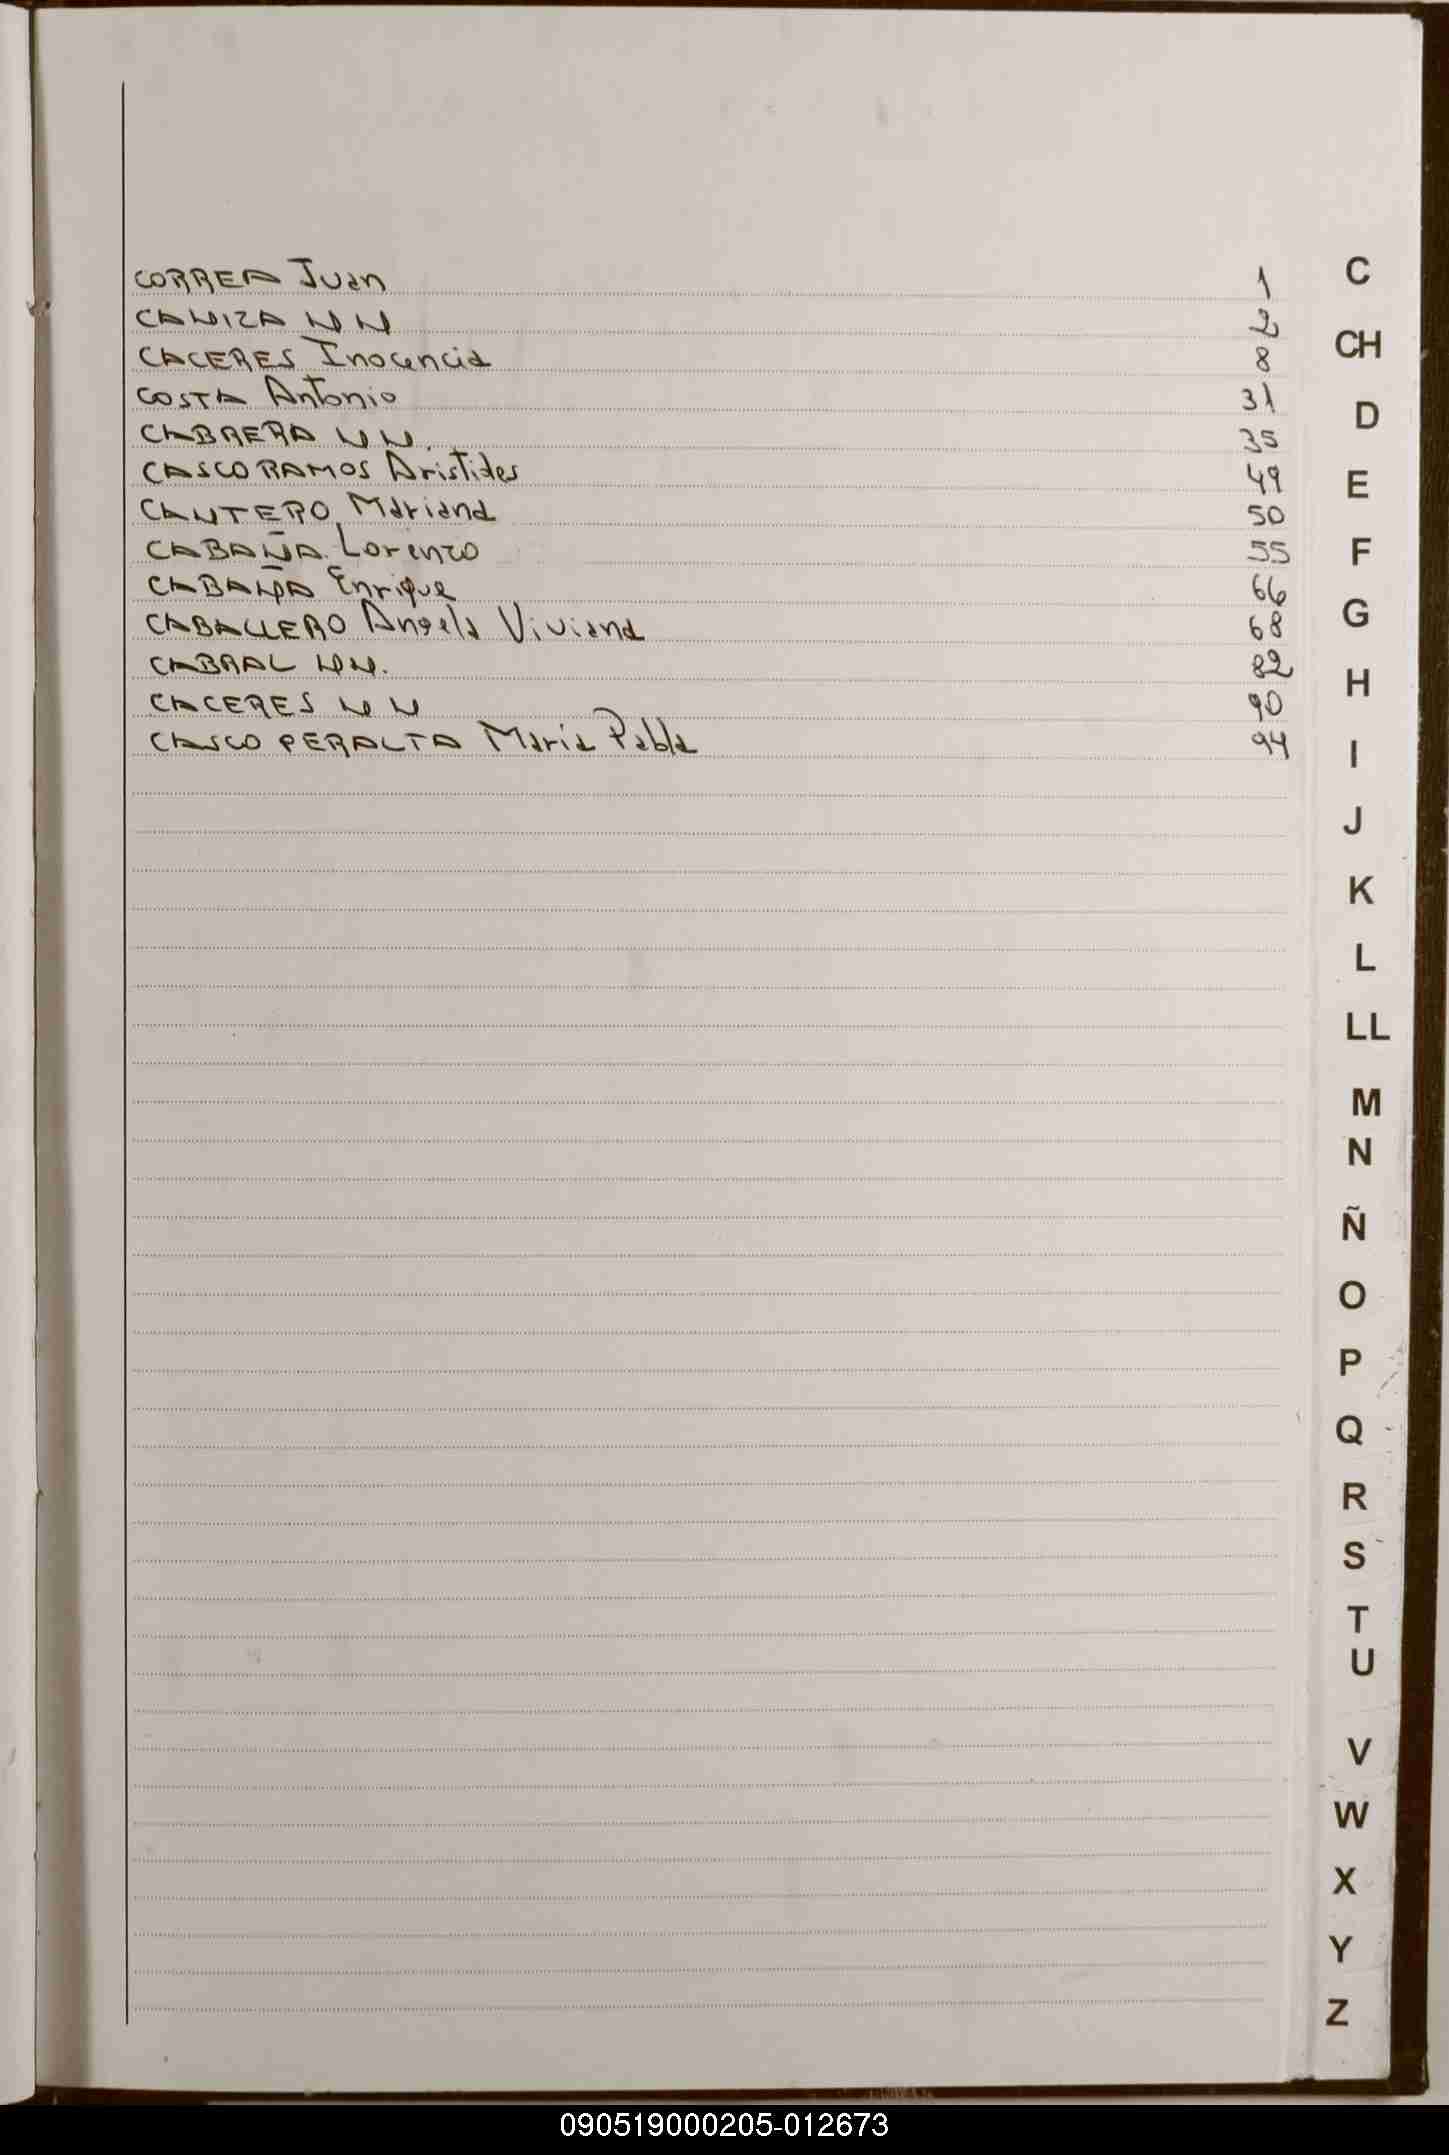 CORREA Juan 1
CANIZA NN 2
CACERES Inocencia 8
COSTA Antonio 31
CABRERA NN. 35
CASCO RAMOS Aristides 49
CANTERO Mariana 50
CABAÑA Lorenzo 55
CABAÑA Enrique 66
CABALLERO Angela Viviana 68
CABRAL NN. 82
CACERES NN 90
CASCO PERALTA Maria Pabla 94
C
CH
D
E
F
G
H
I
J
K
L
LL
M
N
Ñ
O
P
Q
R
S
T
U
V
W
X
Y
Z
090519000205-012673